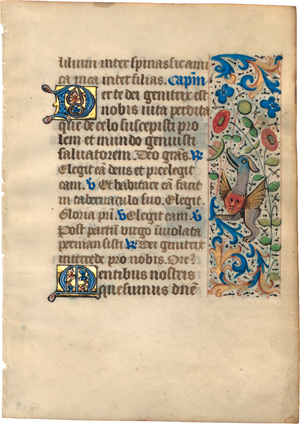 lilium inter spinas sic ami
ca mea inter filias. Capłm
Per te dei genitrix est
nobis vita perdita
que de celo suscepisti pro
lem et mundo genuisti
salvatorem. Deo gras. R
Elegit eā deus et preelegit
eam. V Et habitare eā facit
in tabernaculo suo. Elegit.
Gloria pri. V Elegit eam. V
Post partū virgo inviolata
permansisti. R Dei genitrix
intercede pro nobis. Ore
Mentibus nostris
quesumus dn̄e